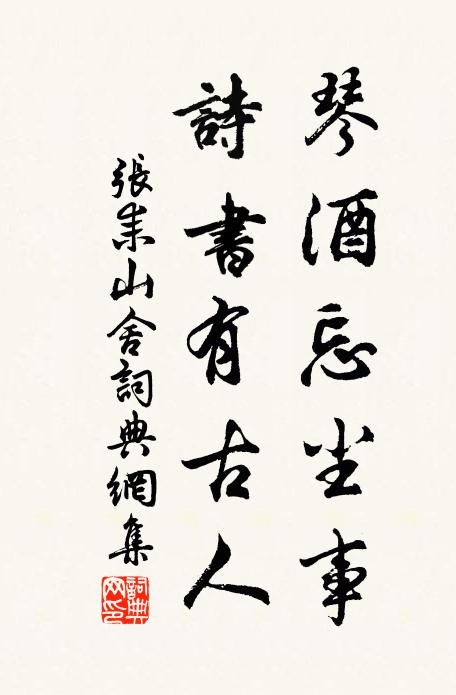 琴酒忘尘事
詩書有古人
張耒山舍詞典網集
詞典网印